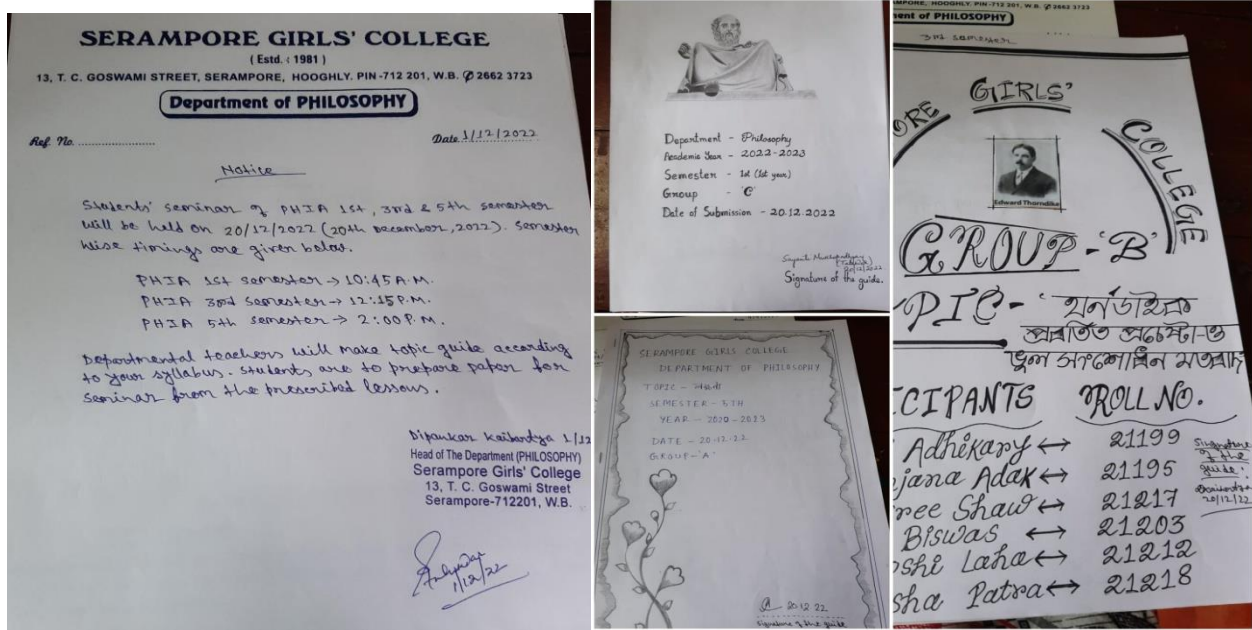 SERAMPORE GIRLS' COLLEGE
( Estd. : 1981 )
13, T. C. GOSWAMI STREET, SERAMPORE, HOOGHLY. PIN-712 201, W.B. ✆ 2662 3723
Department of PHILOSOPHY
Ref. No. ........................ Date 1/12/2022
Notice
Students' seminar of PHIA 1st, 3rd & 5th semester
will be held on 20/12/2022 (20th December, 2022). Semester
wise timings are given below.
PHIA 1st semester → 10:45 A.M.
PHIA 3rd semester → 12:15 P.M.
PHIA 5th semester → 2:00 P.M.
Departmental teachers will make topic guide according
to your syllabus. Students are to prepare paper for
seminar from the prescribed lessons.
Dipankar Kaibartya 1/12
Head of The Department (PHILOSOPHY)
Serampore Girls' College
13, T. C. Goswami Street
Serampore-712201, W.B.
1/12/22
Department - Philosophy
Academic Year - 2022-2023
Semester - 1st (1st year)
Group - 'C'
Date of Submission - 20.12.2022
20/12/2022
Signature of the guide.
SERAMPORE GIRLS COLLEGE
DEPARTMENT OF PHILOSOPHY
TOPIC -
SEMESTER - 5TH
YEAR - 2022 - 2023
DATE - 20-12-22
GROUP - 'A'
20.12.22
Signature of the guide
MPORE, HOOGHLY. PIN-712 201, W.B. ✆ 2662 3723
ment of PHILOSOPHY
3rd semester
ORE GIRLS' COLLEGE
Edward Thorndike
GROUP - 'B'
PIC - 'থর্নডাইক
প্রবর্তিত প্রচেষ্টা-ও
ভুল সংশোধন মতবাদ
CIPANTS ROLL NO.
Adhikary ↔ 21199
jana Adak ↔ 21195
ree Shaw ↔ 21217
Biswas ↔ 21203
oshi Laha ↔ 21212
sha Patra ↔ 21218
Signature
of the
guide.
20/12/22